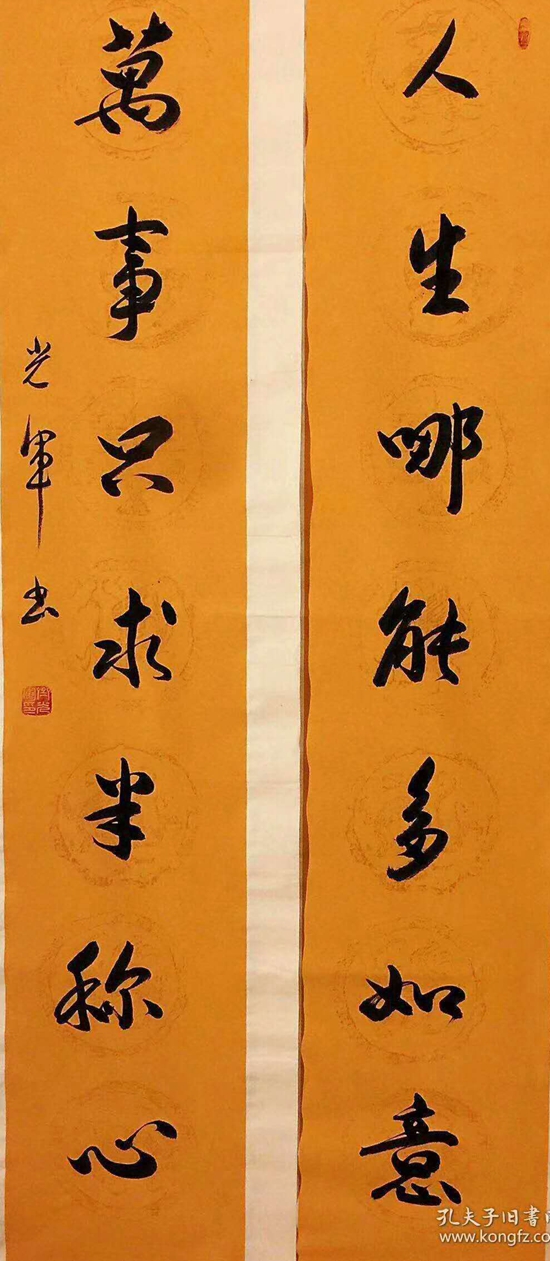 人生哪能多如意
萬事只求半称心
光軍书
孔夫子旧書网
www.kongfz.com